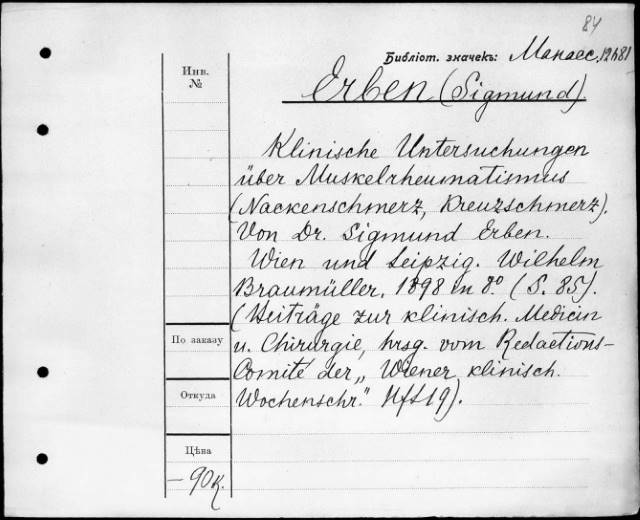 84
Библіот. значекъ: Манасс. 12481
Инв. №
Erben (Sigmund)
Klinische Untersuchungen
über Muskelrheumatismus
(Nackenschmerz, Kreuzschmerz).
Von Dr. Sigmund Erben.
Wien und Leipzig. Wilhelm
Braumüller. 1898 in 8° (S. 85).
(Beiträge zur klinisch. Medicin
u. Chirurgie, hrsg. vom Redactions-
Comité der „Wiener klinisch.
Wochenschr." Hft 19).
По заказу
Откуда
Цѣна
— 90 к.